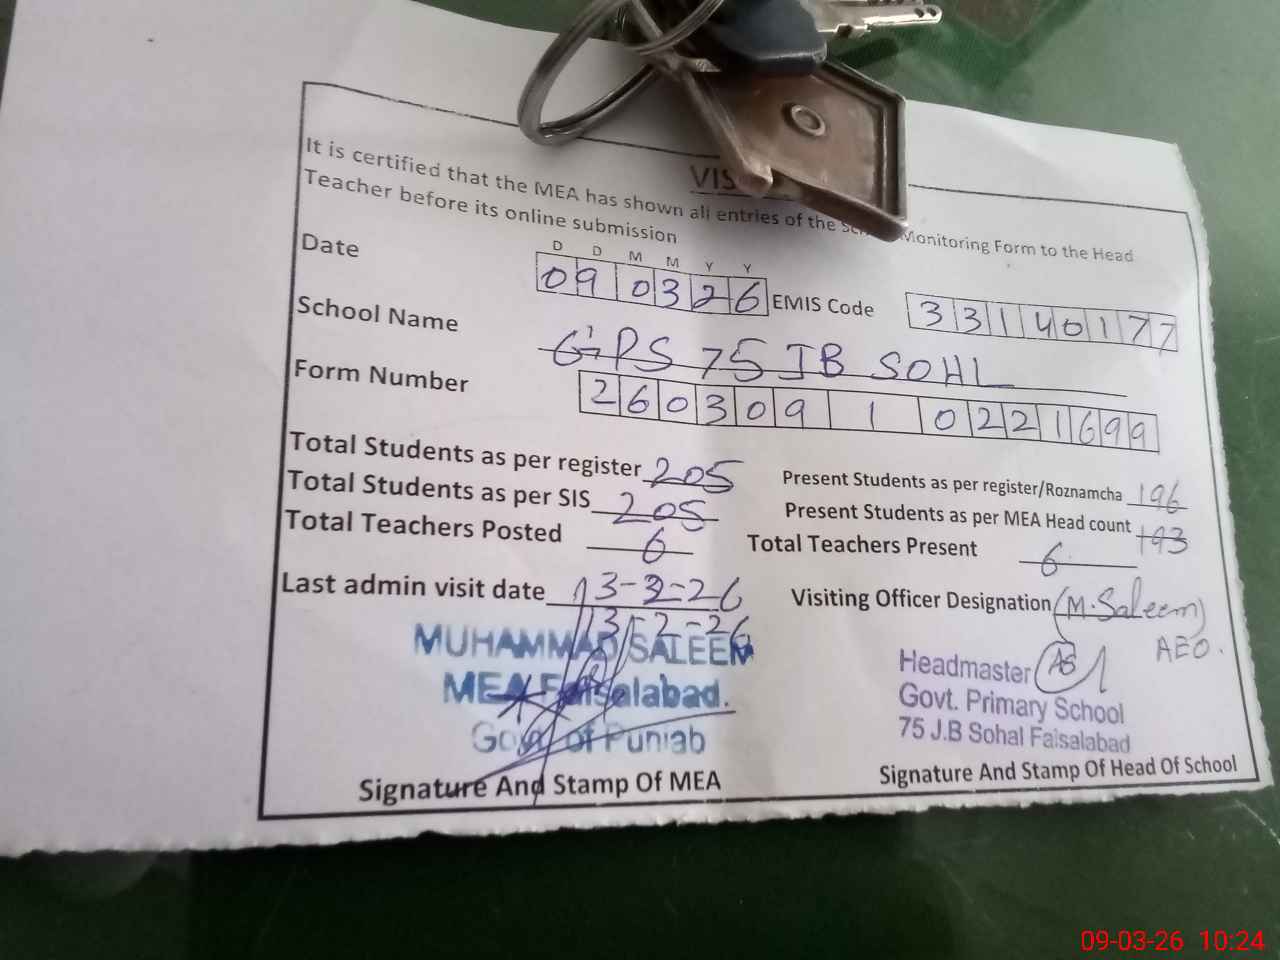 It is certified that the MEA has shown all entries of the Monitoring Form to the Head
Teacher before its online submission
Date D D M M Y Y 090326 EMIS Code 33140177
School Name GPS 75 JB SOHL
Form Number 26030910221699
Total Students as per register 205 Present Students as per register/Roznamcha 196
Total Students as per SIS 205 Present Students as per MEA Head count 193
Total Teachers Posted 6 Total Teachers Present 6
Last admin visit date 13-2-26 Visiting Officer Designation (M.Saleem)
13-2-26 AEO.
MUHAMMAD SALEEM
MEA Faisalabad.
Govt of Punjab
Headmaster
Govt. Primary School
75 J.B Sohal Faisalabad
Signature And Stamp Of MEA Signature And Stamp Of Head Of School
09-03-26 10:24